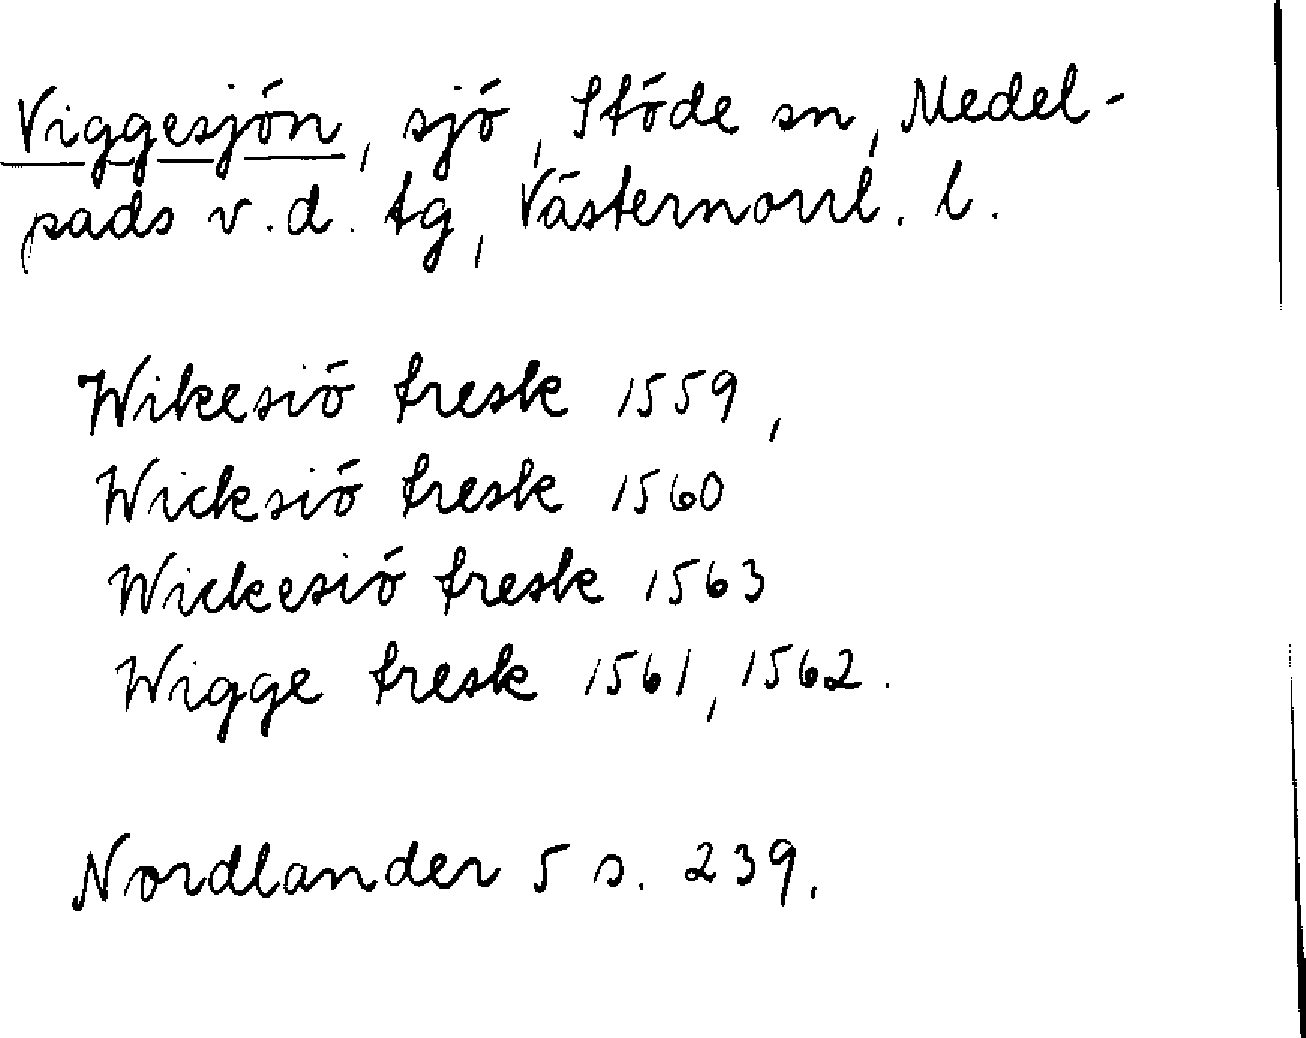 Viggesjön, sjö, Stöde sn, Medel-
pads v.d. tg, Västernorrl. l.
Wikesiö tresk 1559,
Wicksiö tresk 1560
Wickesiö tresk 1563
Wigge tresk 1561, 1562.
Nordlander 5 s. 239.